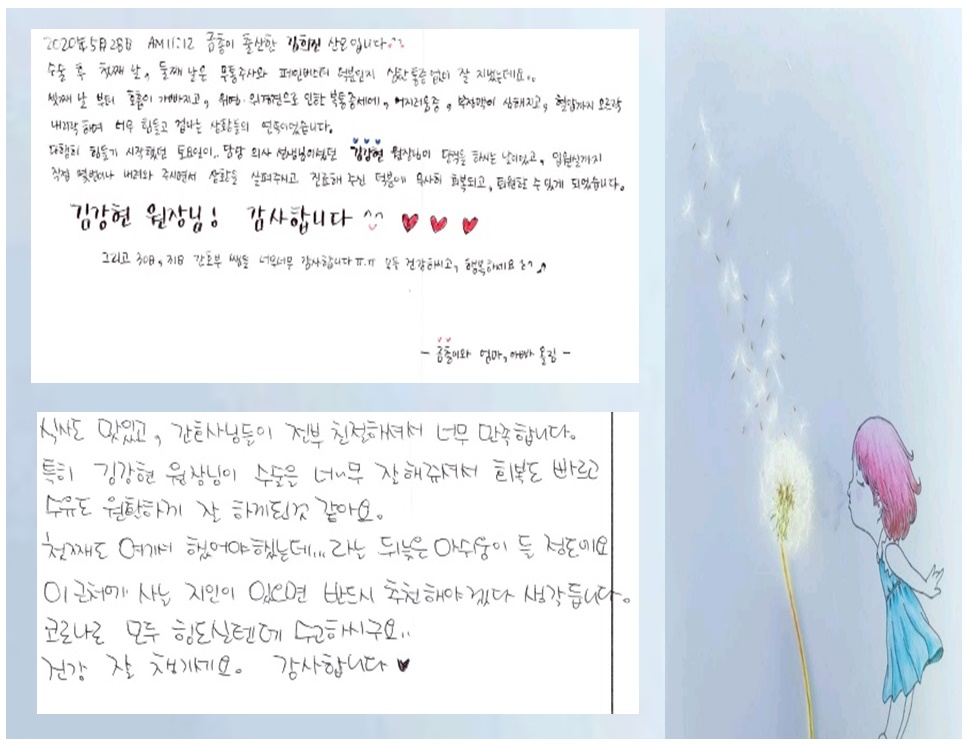 2020年5月28日 AM11:12 금쫑이 출산한 김희진 산모입니다^^
수술 후 첫째 날, 둘째 날은 무통주사와 페인버스터 덕분인지 심한 통증 없이 잘 지냈는데요..
셋째 날 부터 호흡이 가빠지고, 위염·위경련으로 인한 복통증세에, 어지러움증, 부정맥이 심해지고, 혈압까지 오르락
내리락 하며 너무 힘들고 겁나는 상황들의 연속이었습니다.
다행히 힘들기 시작했던 토요일이.. 담당 의사 선생님이셨던 김강현 원장님이 당직을 하시는 날이었고, 입원실까지
직접 몇번이나 내려와 주시면서 상황을 살펴주시고 진료해 주신 덕분에 무사히 회복되고, 퇴원할 수 있게 되었습니다.
김강현 원장님! 감사합니다 ^^ ♥ ♥ ♥
그리고 30日, 31日 간호부 쌤들 너무너무 감사합니다 ㅠ.ㅠ 모두 건강하시고, 행복하세요
- 엄마, 아빠 올림 -
식사도 맛있고, 간호사님들이 전부 친절하셔서 너무 만족합니다.
특히 김강현 원장님이 수술은 너~무 잘해주셔서 회복도 빠르고
수유도 원활하게 잘 하게된것 같아요.
첫째도 여기서 했었어야했는데...라는 뒤늦은 아쉬움이 들 정도예요
이 근처에 사는 지인이 있으면 반드시 추천해야겠다 생각듭니다.
코로나로 모두 힘드실텐데 수고하시구요..
건강 잘 챙기세요. 감사합니다 ♥